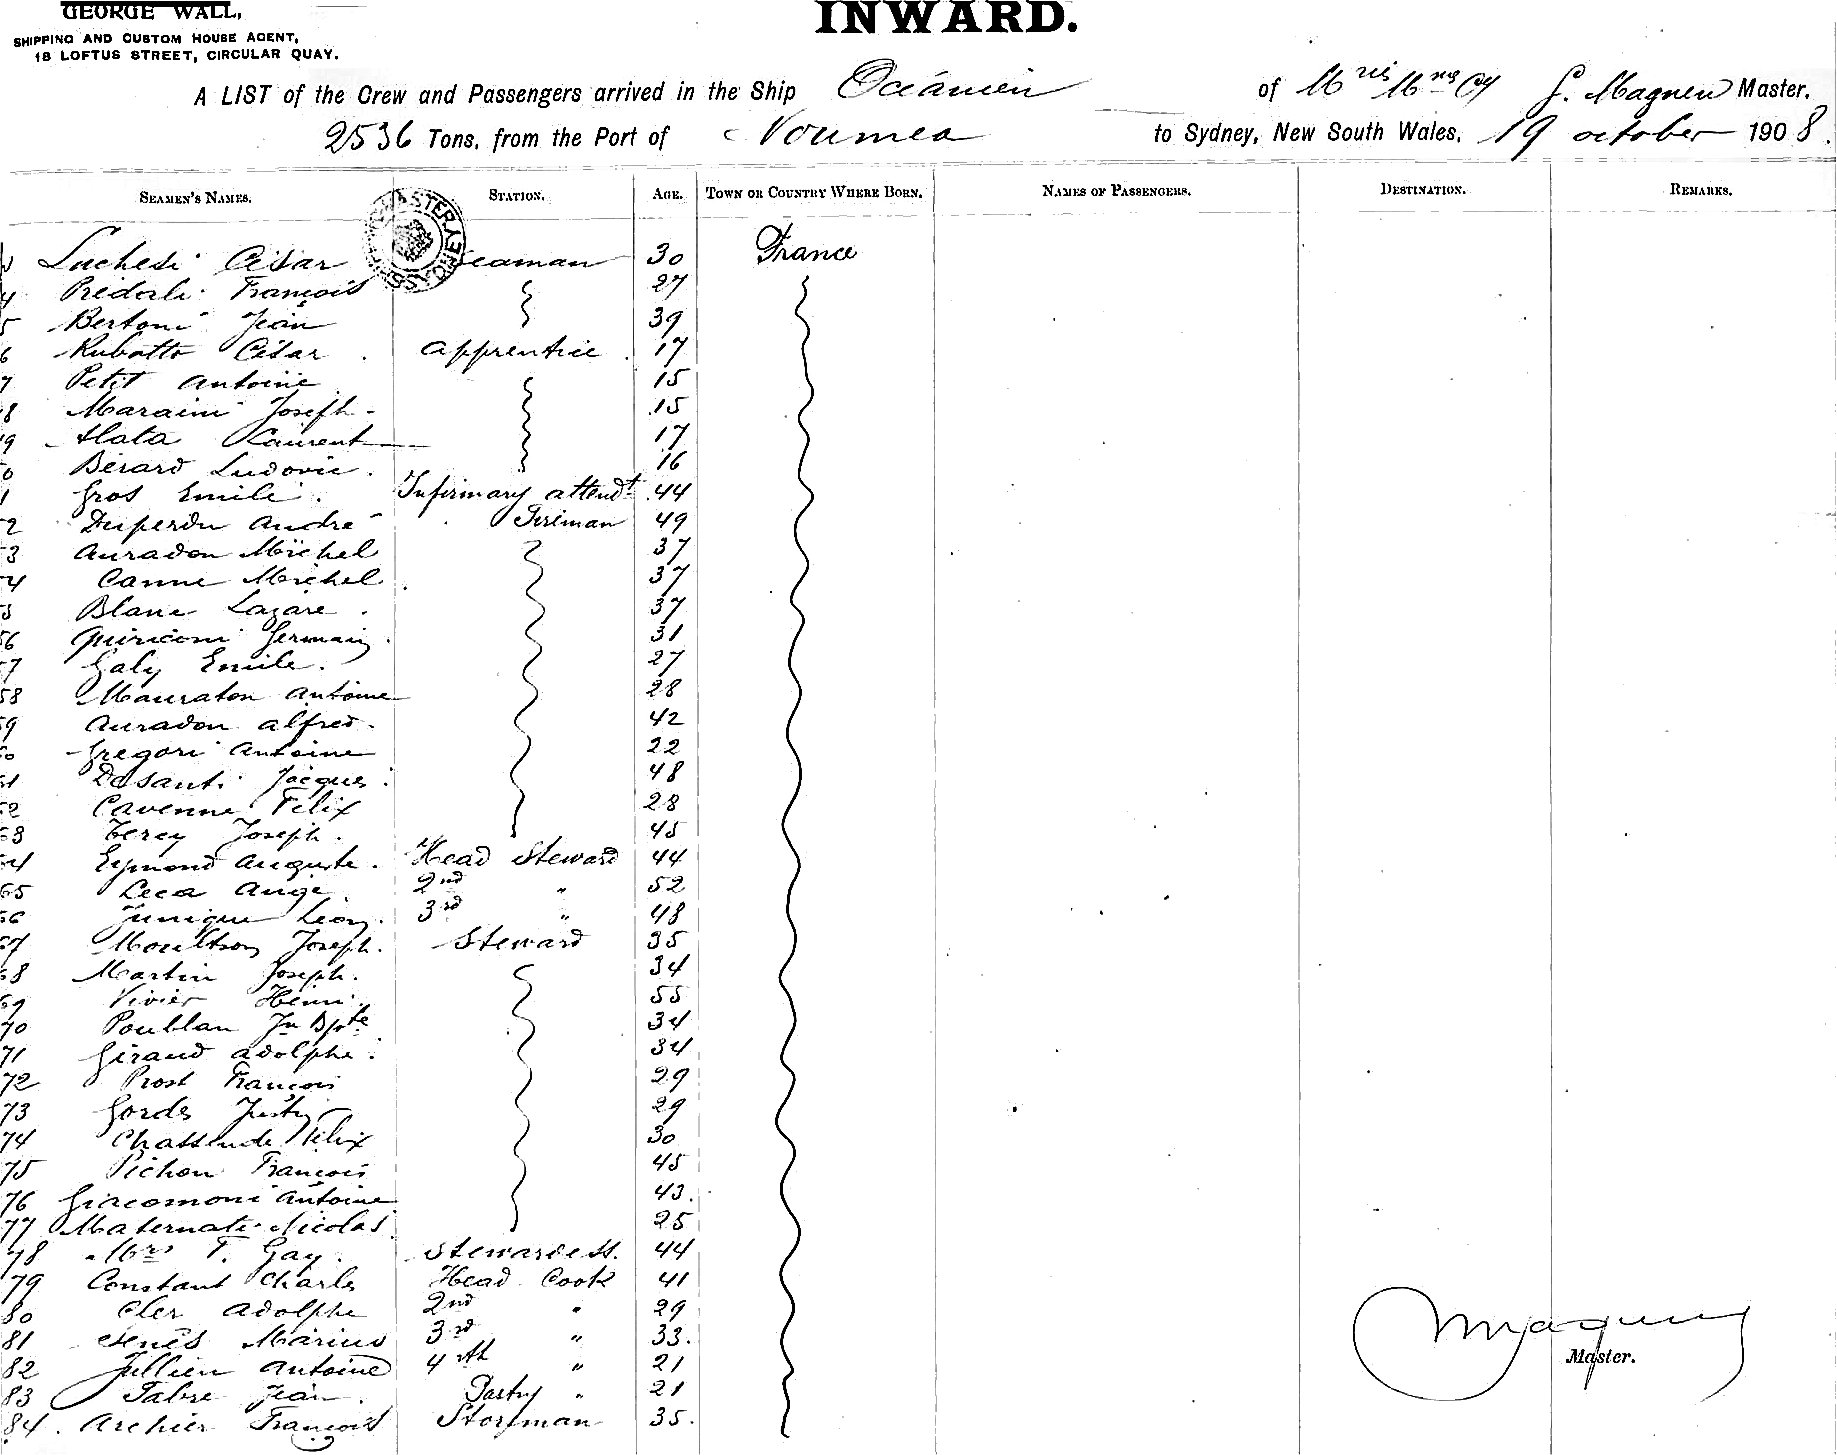 GEORGE WALL,
SHIPPING AND CUSTOM HOUSE AGENT,
18 LOFTUS STREET, CIRCULAR QUAY.
INWARD.
A LIST of the Crew and Passengers arrived in the Ship Océanien of Mries Mmes Cy J. Magnen Master.
2536 Tons, from the Port of Noumea to Sydney, New South Wales, 19 october 1908.
SEAMEN'S NAMES. STATION. AGE. TOWN OR COUNTRY WHERE BORN. NAMES OF PASSENGERS. DESTINATION. REMARKS.
Luchesi César Seaman 30 France
4 Predali François 27
5 Bertoni Jean 39
6 Rubatto César apprentice 17
7 Petit antoine 15
8 Maraini Joseph 15
9 Laurent 17
0 Bérard Ludovic 16
1 Gros Emile Infirmary attendt 44
2 Duperdu andré Fireman 49
3 auradon Michel 37
4 Canne Michel 37
5 Blanc Lazare 37
56 Quiriconi Germain 31
7 Galy Emile 27
58 Mauraton antoine 28
59 auradon alfred 42
60 Gregori antoine 22
61 Desanti Jacques 48
62 Cavenne Félix 28
63 Terey Joseph 45
64 Eymond auguste Head Steward 44
65 Leca ange 2nd " 52
66 Junique Leon 3rd " 48
67 Moultson Joseph Steward 35
68 Martin Joseph 34
69 Vivier Henri 55
70 Poublan Jn Bpte 34
71 Giraud adolphe 34
72 Prost François 29
73 Gordes Justin 29
74 Chassende Félix 30
75 Pichon François 45
76 Giacomoni antoine 43
77 Maternati Nicolas 25
78 Mrs T. Gay Stewardess. 44
79 Constant Charles Head Cook 41
80 Cler adolphe 2nd " 29
81 Marius 3rd " 33.
82 Jullien antoine 4rth " 21
83 Fabre Jean Pastry " 21
84. archier François Storeman 35.
Magnen
Master.